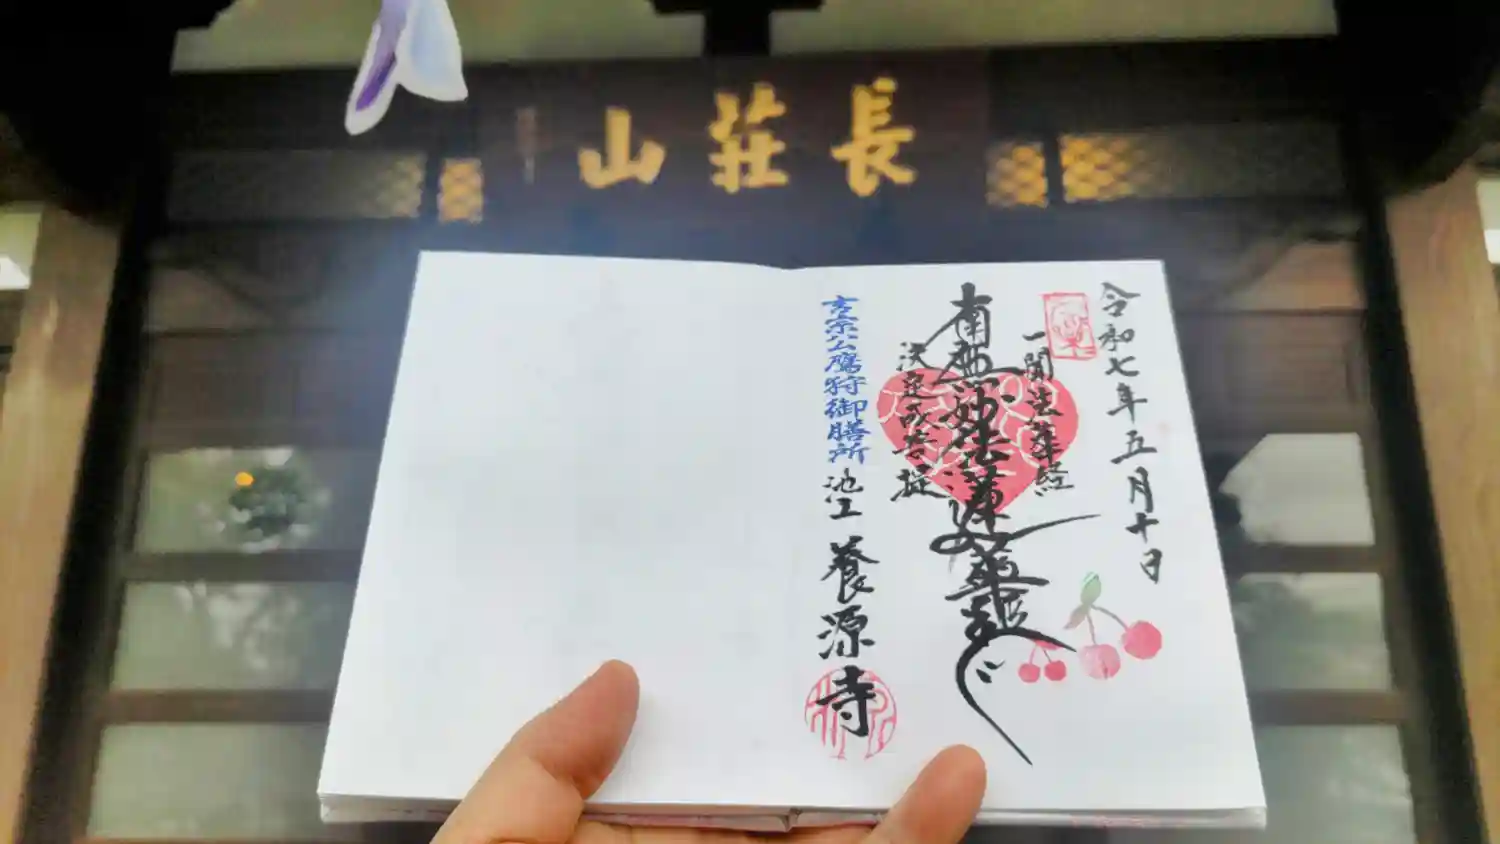 長荘山
令和七年五月十日
一聞法華経
南無妙法蓮華経
決定成菩提
吉宗公鷹狩御膳所
池上 養源寺